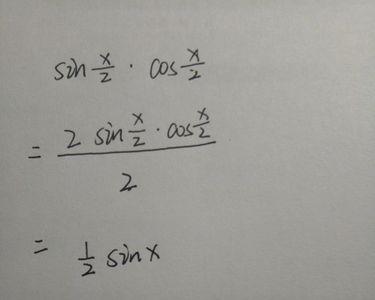 sin x/2 · cos x/2
= 2 sin x/2 · cos x/2 / 2
= 1/2 sin x